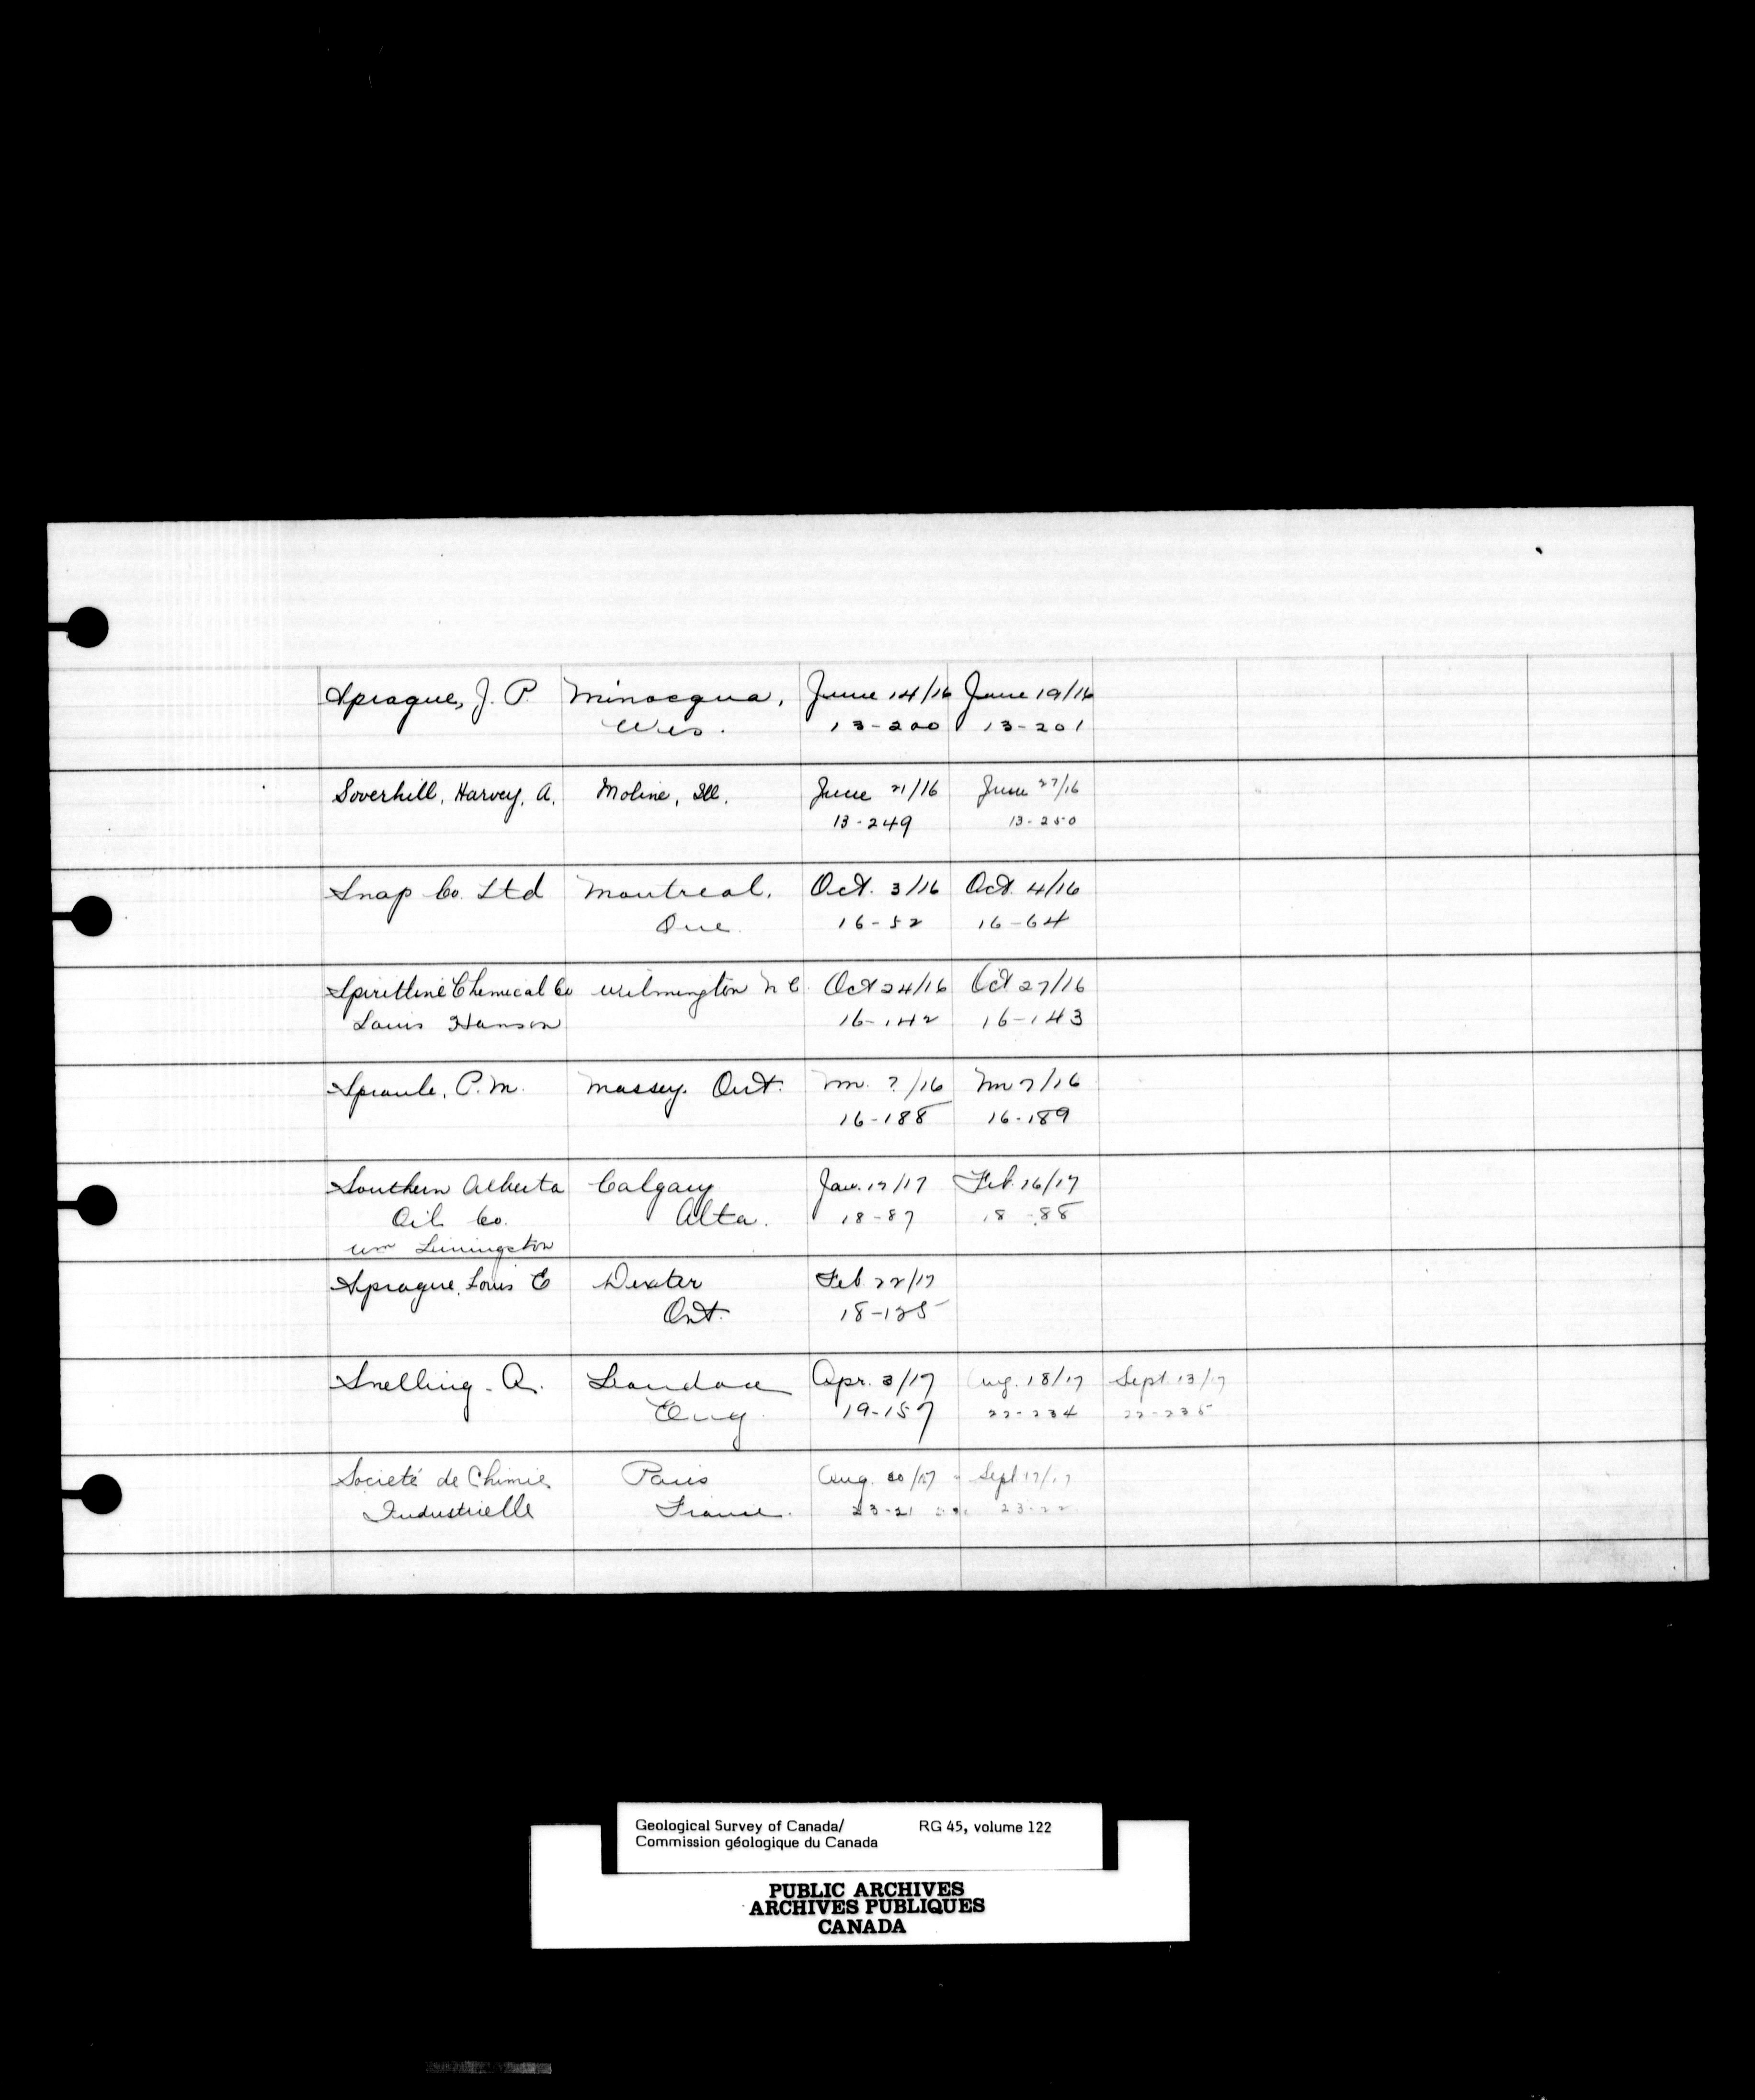 Sprague, J. P. Minocqua, June 14/16 June 19/16
Wis. 13-200 13-201
Soverhill, Harvey, A. Moline, Ill. June 21/16 June 27/16
13-249 13-250
Snap Co. Ltd Montreal, Oct. 3/16 Oct. 4/16
Que. 16-52 16-64
Spirittine Chemical Co Wilmington N C. Oct 24/16 Oct 27/16
Louis Hanson 16-142 16-143
Sproule, P. M. Massey, Ont. Nov. ?/16 Nov 7/16
16-188 16-189
Southern Alberta Calgary Jan. 17/17 Feb. 16/17
Oil Co. Alta. 18-87 18-88
Wm
Sprague, Louis E Dexter Feb. 22/17
Ont. 18-125
Snelling - A. Apr. 3/17 Aug. 18/17 Sept 13/17
Eng. 19-157 22-234 22-235
Societé de Chimie Paris Aug. Sept 17/17
Industrielle France. 23-21 23-22
Geological Survey of Canada/ RG 45, volume 122
Commission géologique du Canada
PUBLIC ARCHIVES
ARCHIVES PUBLIQUES
CANADA